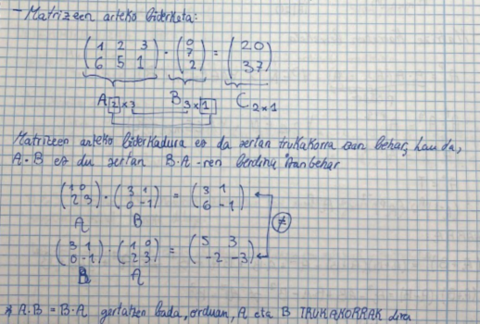 - Matrizeen arteko biderketa:
(1 2 3) · (0) = (20)
(6 5 1) (7) (37)
(2)
A 2x3 B 3x1 C 2x1
Matrizeen arteko biderkadura ez da zertan trukakorra izan behar, hau da,
A·B ez du zertan B·A-ren berdina izan behar
(1 0) · (3 1) = (3 1)
(2 3) (0 -1) (6 -1)
A B ≠
(3 1) · (1 0) = (5 3)
(0 -1) (2 3) (-2 -3)
B A
* A·B = B·A gertatzen bada, orduan, A eta B TRUKAKORRAK dira